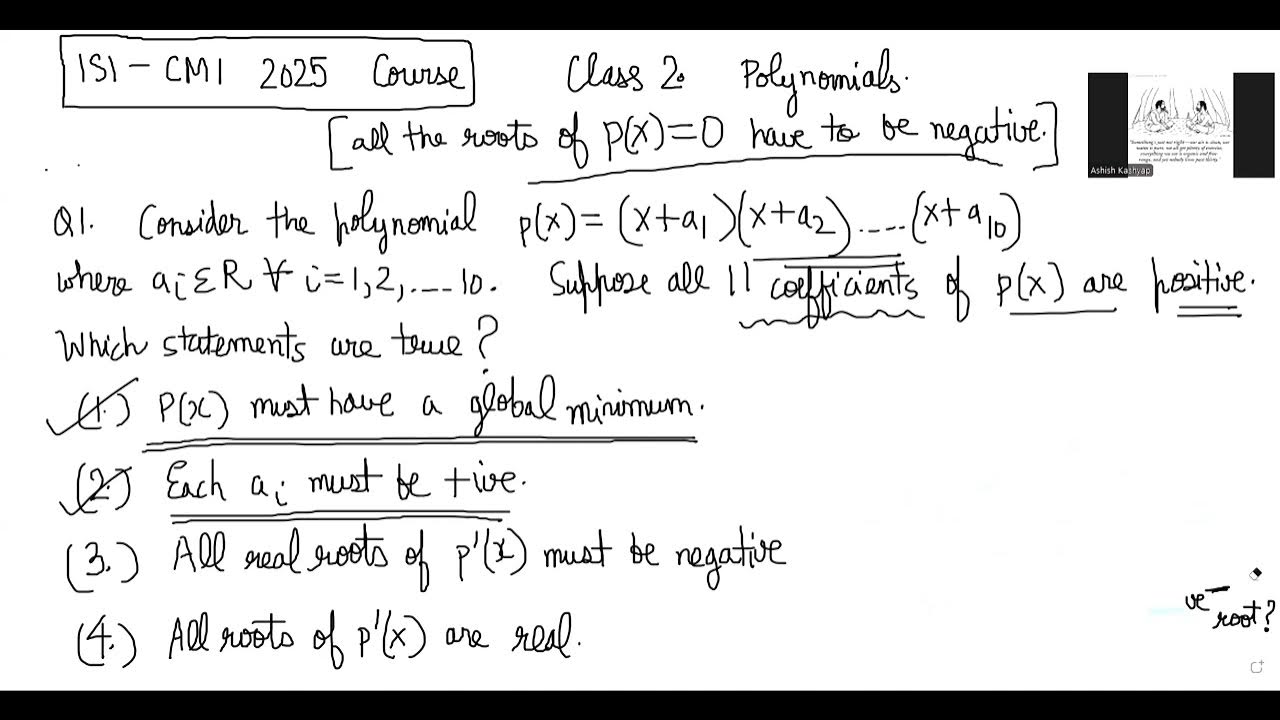 ISI - CMI 2025 Course Class 2. Polynomials.
[all the roots of p(x)=0 have to be negative.]
Ashish Kashyap
Q1. Consider the polynomial p(x) = (x+a₁)(x+a₂).....(x+a₁₀)
where aᵢ Σ R ∀ i=1,2,....10. Suppose all 11 coefficients of p(x) are positive.
Which statements are true?
(1.) P(x) must have a global minimum.
(2.) Each aᵢ must be +ive.
(3.) All real roots of p'(x) must be negative
(4.) All roots of p'(x) are real.
ve root?